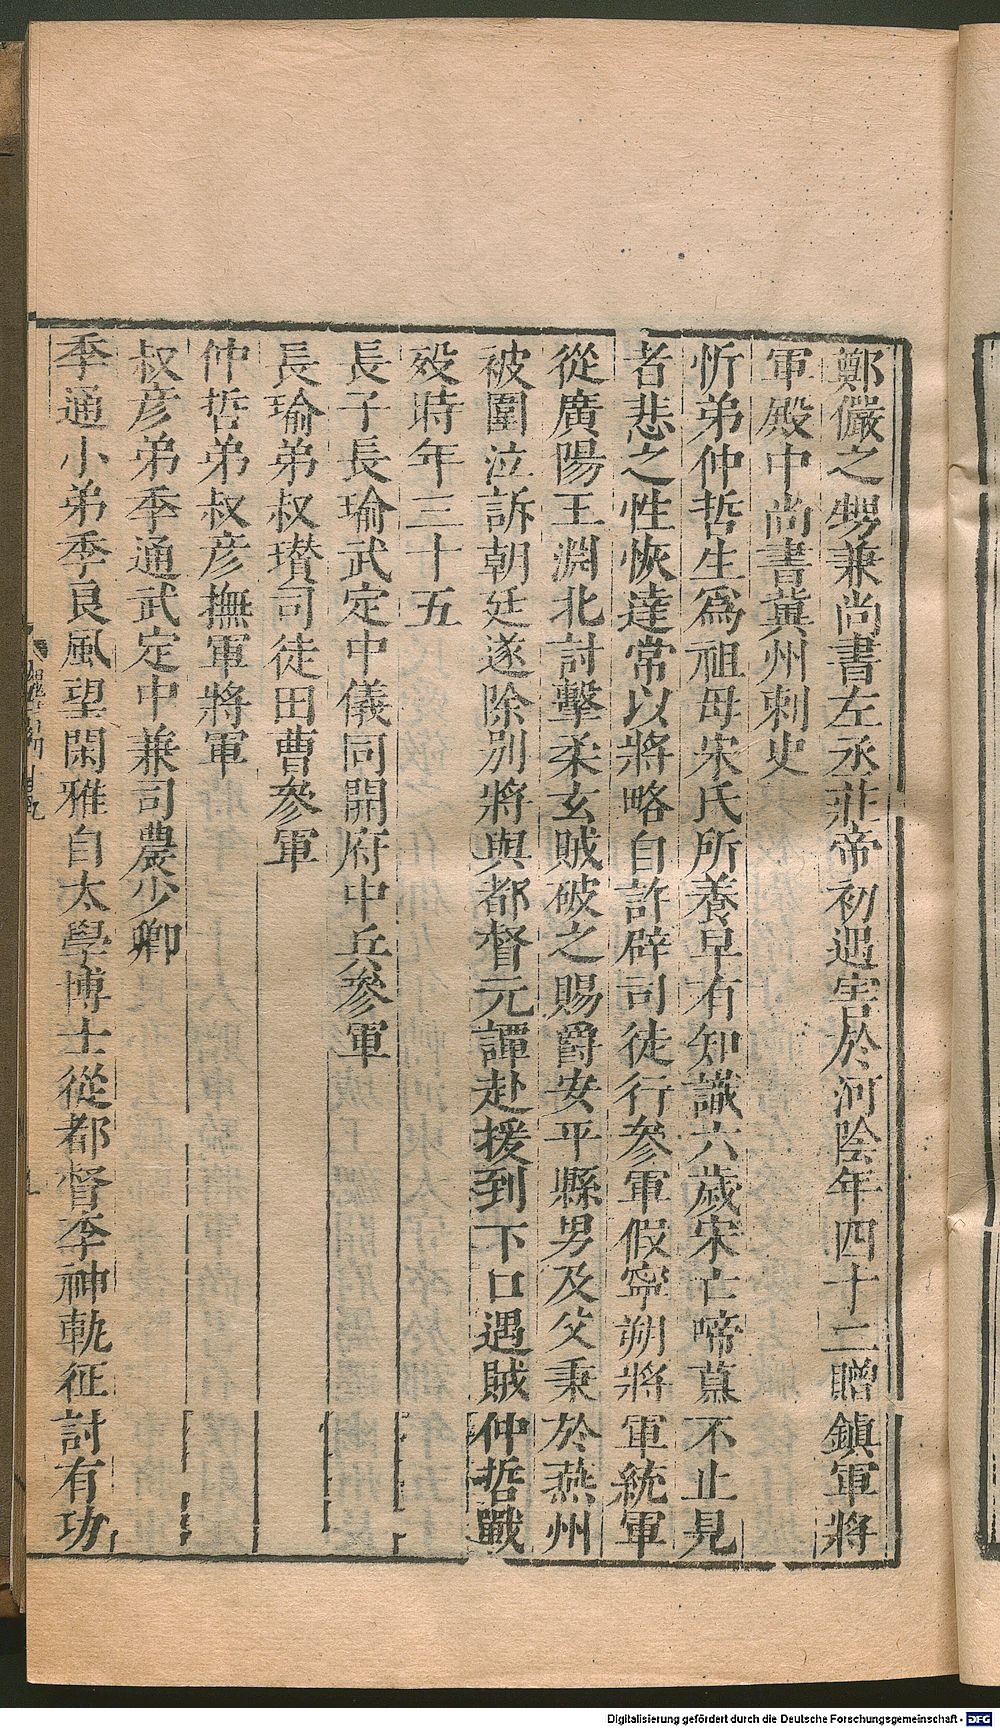 鄭儼之甥兼尚書左丞莊帝初遇害於河陰年四十二贈鎮軍將
軍殿中尚書冀州刺史
忻弟仲哲生爲祖母宋氏所養早有知識六歲宋亡啼慕不止見
者悲之性恢達常以將略自許辟司徒行參軍假寧朔將軍統軍
從廣陽王淵北討擊柔玄賊破之賜爵安平縣男及父秉於燕州
被圍泣訴朝廷遂除別將與都督元譚赴援到下口遇賊仲哲戰
歿時年三十五
長子長瑜武定中儀同開府中兵參軍
長瑜弟叔瓚司徒田曹參軍
仲哲弟叔彥撫軍將軍
叔彥弟季通武定中兼司農少卿
季通小弟季良風望閑雅自太學博士從都督李神軌征討有功
Digitalisierung gefördert durch die Deutsche Forschungsgemeinschaft - DFG